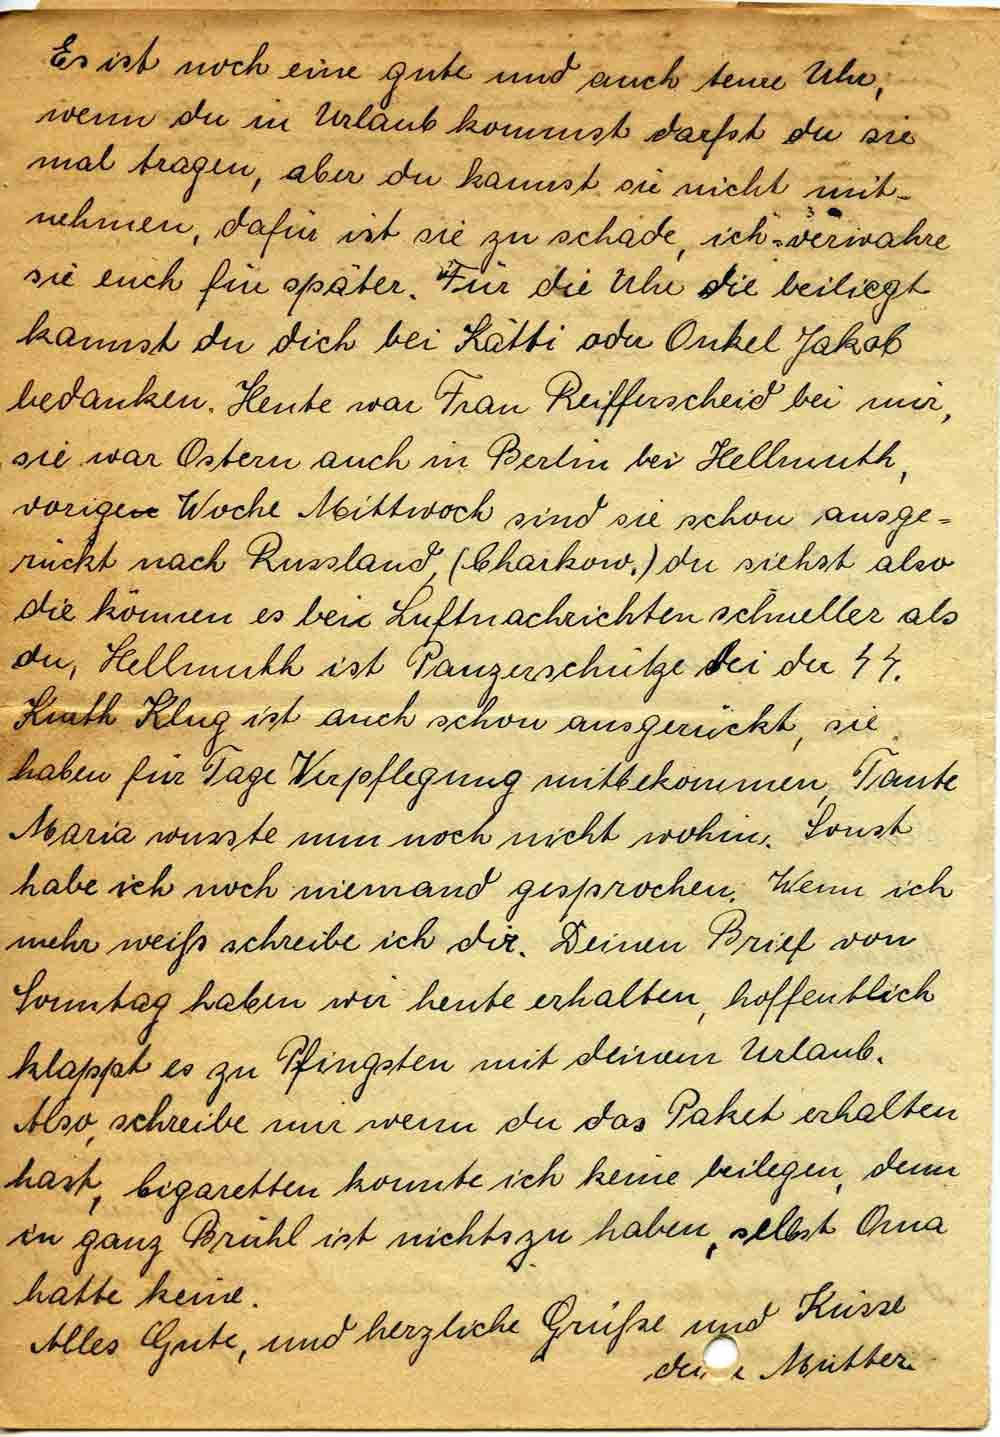 Es ist noch eine gute und auch teure Uhr,
wenn du in Urlaub kommst darfst du sie
mal tragen, aber du kannst sie nicht mit-
nehmen, dafür ist sie zu schade, ich verwahre
sie euch für später. Für die Uhr die beiliegt
kannst du dich bei Kätti oder Onkel Jakob
bedanken. Heute war Frau Reifferscheid bei mir,
sie war Ostern auch in Berlin bei Hellmuth,
vorige Woche Mittwoch sind sie schon ausge=
rückt nach Russland, (Charkow.) du siehst also
die können es bei Luftnachrichten schneller als
du, Hellmuth ist Panzerschütze bei der SS.
Klug ist auch schon ausgerückt, sie
haben für Tage Verpflegung mitbekommen, Tante
Maria wusste nun noch nicht wohin. Sonst
habe ich noch niemand gesprochen. Wenn ich
mehr weiß schreibe ich dir. Deinen Brief von
Sonntag haben wir heute erhalten, hoffentlich
klappt es zu Pfingsten mit deinem Urlaub.
Also, schreibe mir wenn du das Paket erhalten
hast, Cigaretten konnte ich keine beilegen, denn
in ganz Brühl ist nichts zu haben, selbst Oma
hatte keine.
Alles Gute, und herzliche Grüße und Küsse
deine Mutter.